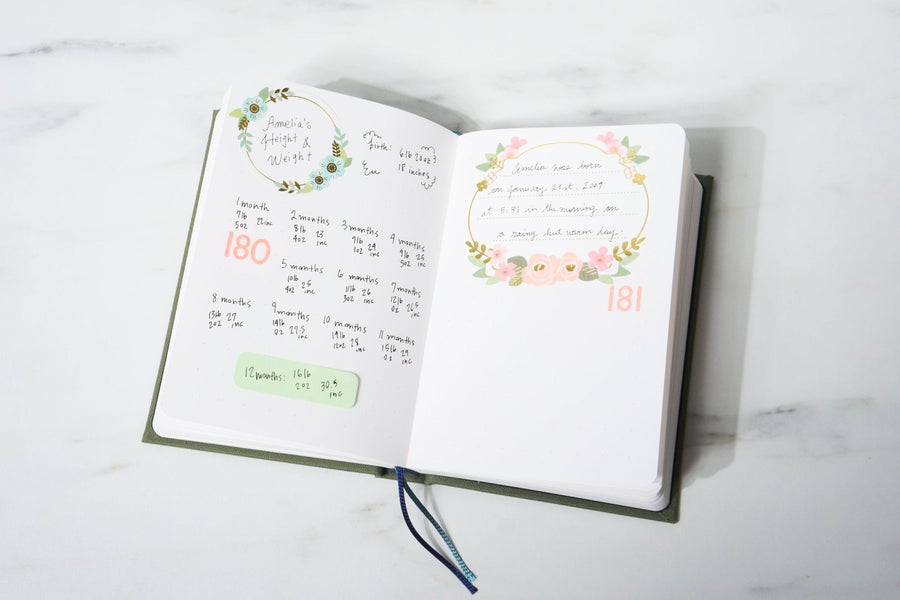 Amelia's
Height &
Weight
birth: 6lb 20z
18 inches
1 month
7lb
5oz 22inc
2 months
8lb 23
4oz inc
3 months
9lb 24
1oz inc
4 months
9lb 25
5oz inc
180
5 months
10lb 25
4oz inc
6 months
11lb 26
3oz inc
7 months
12lb 26.5
0z inc
8 months
13lb 27
2oz inc
9 months
14lb 27.5
0z inc
10 months
14lb 28
12oz inc
11 months
15lb 29
0z inc
12 months: 16lb
2oz 30.5
inc
Amelia was born
on January 21st, 2007
at 5:31 in the morning on
a rainy but warm day.
181